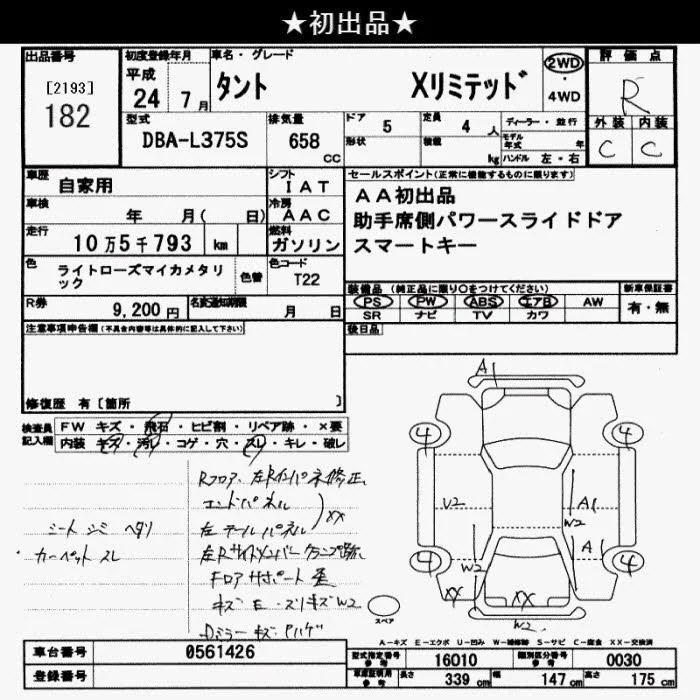 ★初出品★
出品番号
[2193]
182
初度登録年月
平成
24 7月
車名・グレード
タント Xリミテッド
2WD
・
4WD
評価点
R
外装 内装
C C
型式
DBA-L375S
排気量
658 CC
ドア 5
定員 4 人
形状
積載 kg
ディーラー・並行
モデル年式 年
ハンドル 左・右
車歴
自家用
シフト
IAT
車検
年 月( 日)
冷房
AAC
走行
10万5千793 km
燃料
ガソリン
色
ライトローズマイカメタリック
色替
色コード
T22
R券
9,200円
名変通知期限
月 日
セールスポイント(正常に機能するものに限ります)
AA初出品
助手席側パワースライドドア
スマートキー
装備品 (純正品に限り○をつけてください)
PS PW ABS エアB AW
SR ナビ TV カワ
新車保証書
有・無
後日品
注意事項申告欄(不具合内容等は具体的に記入して下さい)
修復歴 有[箇所 ]
検査員記入欄
FW キズ・飛石・ヒビ割・リペア跡・×要
内装 キズ・汚レ・コゲ・穴・スレ・キレ・破レ
Rフロア、左Rインパネ修正、
エンドパネル
左テールパネル
XX
左Rサイドメンバークランプ跡
Fロアサポート歪
キズ E・スリキズW2
Dミラーキズ・Pハゲ
シートシミ ヘタリ
・カーペットスレ
A1
4 4
U2 A1
W2
A1
4 W2 4
XX XX
W2
スペア
A-キズ E-エクボ U-凹み W-補修跡 S-サビ C-腐食 XX-交換済
車台番号 0561426
登録番号
型式指定番号 参考 16010
類別区分番号 参考 0030
車庫証明用 参考
長さ 339 cm
幅 147 cm
高さ 175 cm